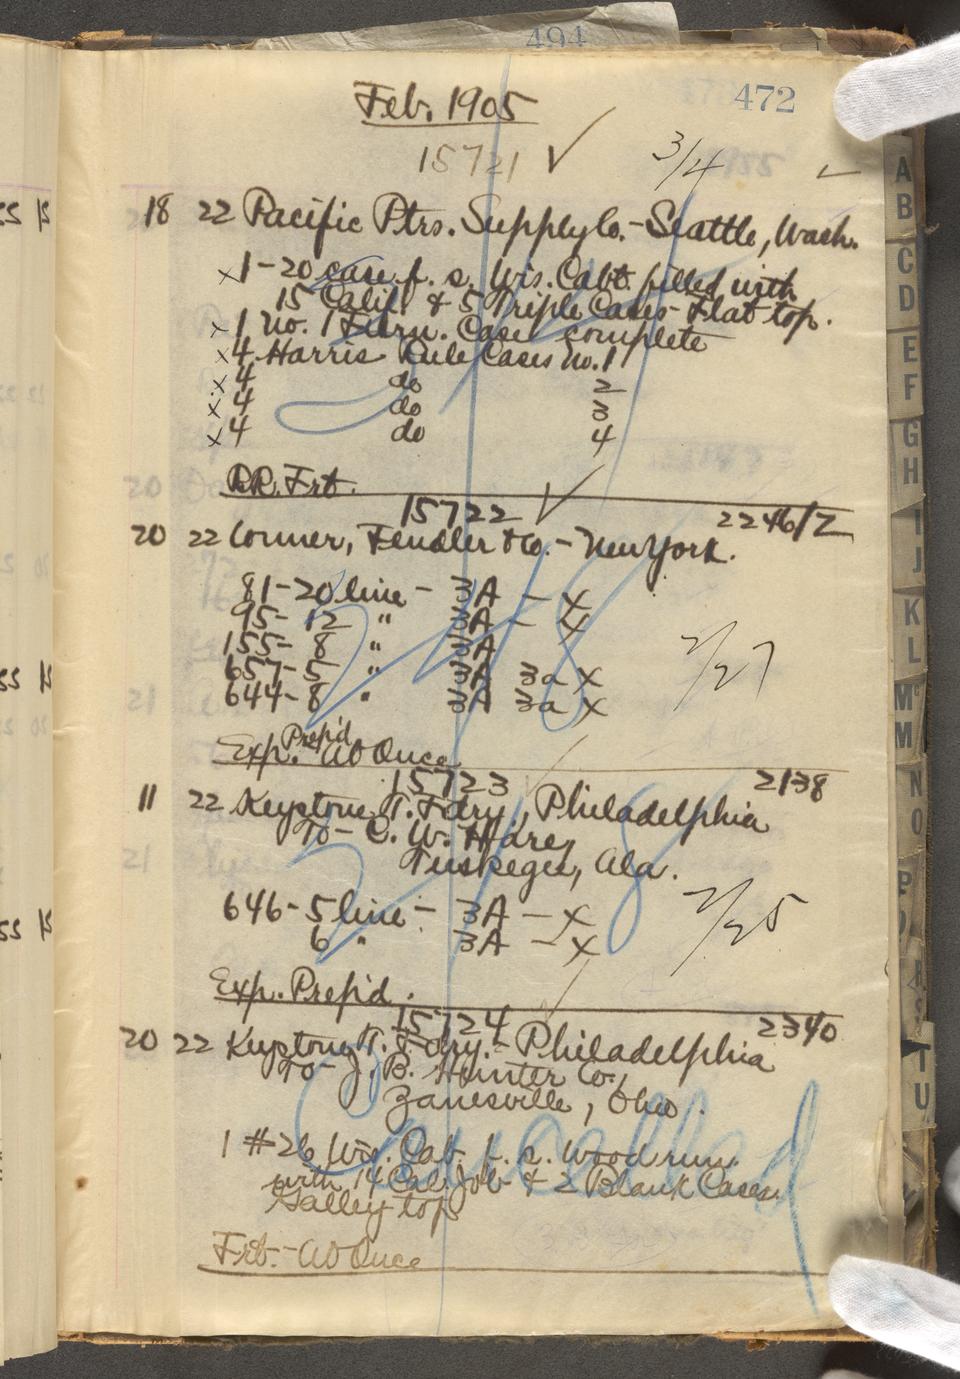 494
472
Feb. 1905
15721 ✓ 3/4
18 22 Pacific Ptrs. Supply Co. - Seattle, Wash.
x 1-20 case f. s. Wis. Cabt. filled with
15 Calif. & 5 Triple Cases - Flat top.
x 1 No. 1 Furn. Case complete
x 4 Harris Rule Cases No. 1
x 4 do 2
x 4 do 3
x 4 do 4
RR. Frt.
15722 ✓ 2246/2
20 22 Conner, Fendler & Co. - New York.
81-20 line - 3A - x
95-12 " 3A - x
155-8 " 3A
657-5 " 3A 3a x
644-8 " 3A 3a x
2/27
Prep'd
Exp. At Once
15723 2138
11 22 Keystone T. Fdry., Philadelphia
To - C. W. Hare,
Tuskegee, Ala.
646-5 line - 3A - x
6 " 3A - x
2/25
Exp. Prep'd.
15724 2340
20 22 Keystone T. Fdry. - Philadelphia
To - J. B. Hunter Co.,
Zanesville, Ohio.
Cancelled
1 #26 Wis. Cab. f. s. Wood run
with 14 Cal. Job & 2 Blank Cases
Galley top
Frt. - At Once
A
B
C
D
E
F
G
H
I
J
K
L
Mc
M
N
O
P
R
S
T
U